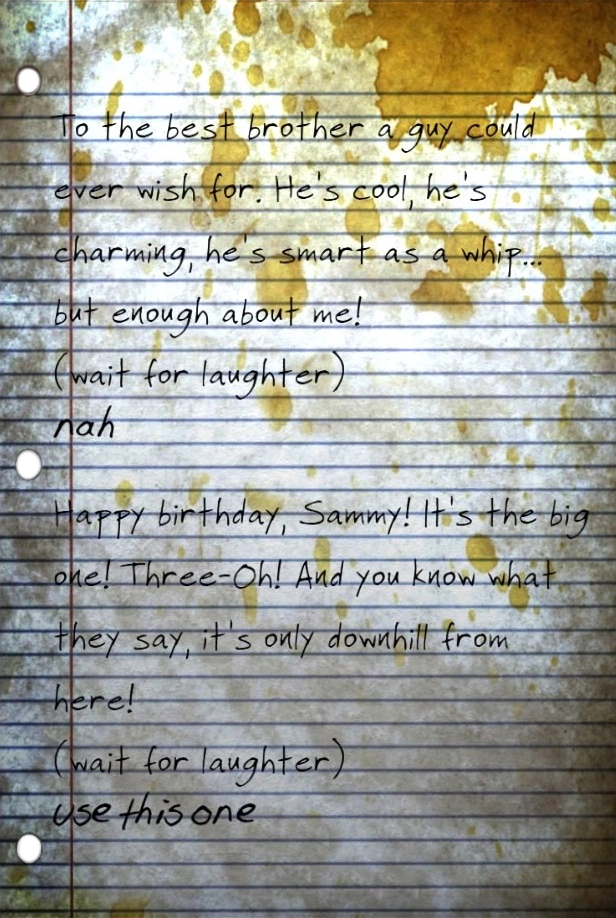 To the best brother a guy could
ever wish for. He's cool, he's
charming, he's smart as a whip...
but enough about me!
(wait for laughter)
nah
Happy birthday, Sammy! It's the big
one! Three-Oh! And you know what
they say, it's only downhill from
here!
(wait for laughter)
use this one